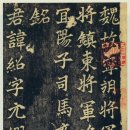 魏故寧朔將
將鎮東將軍
宜陽子司馬
銘
君諱紹字元